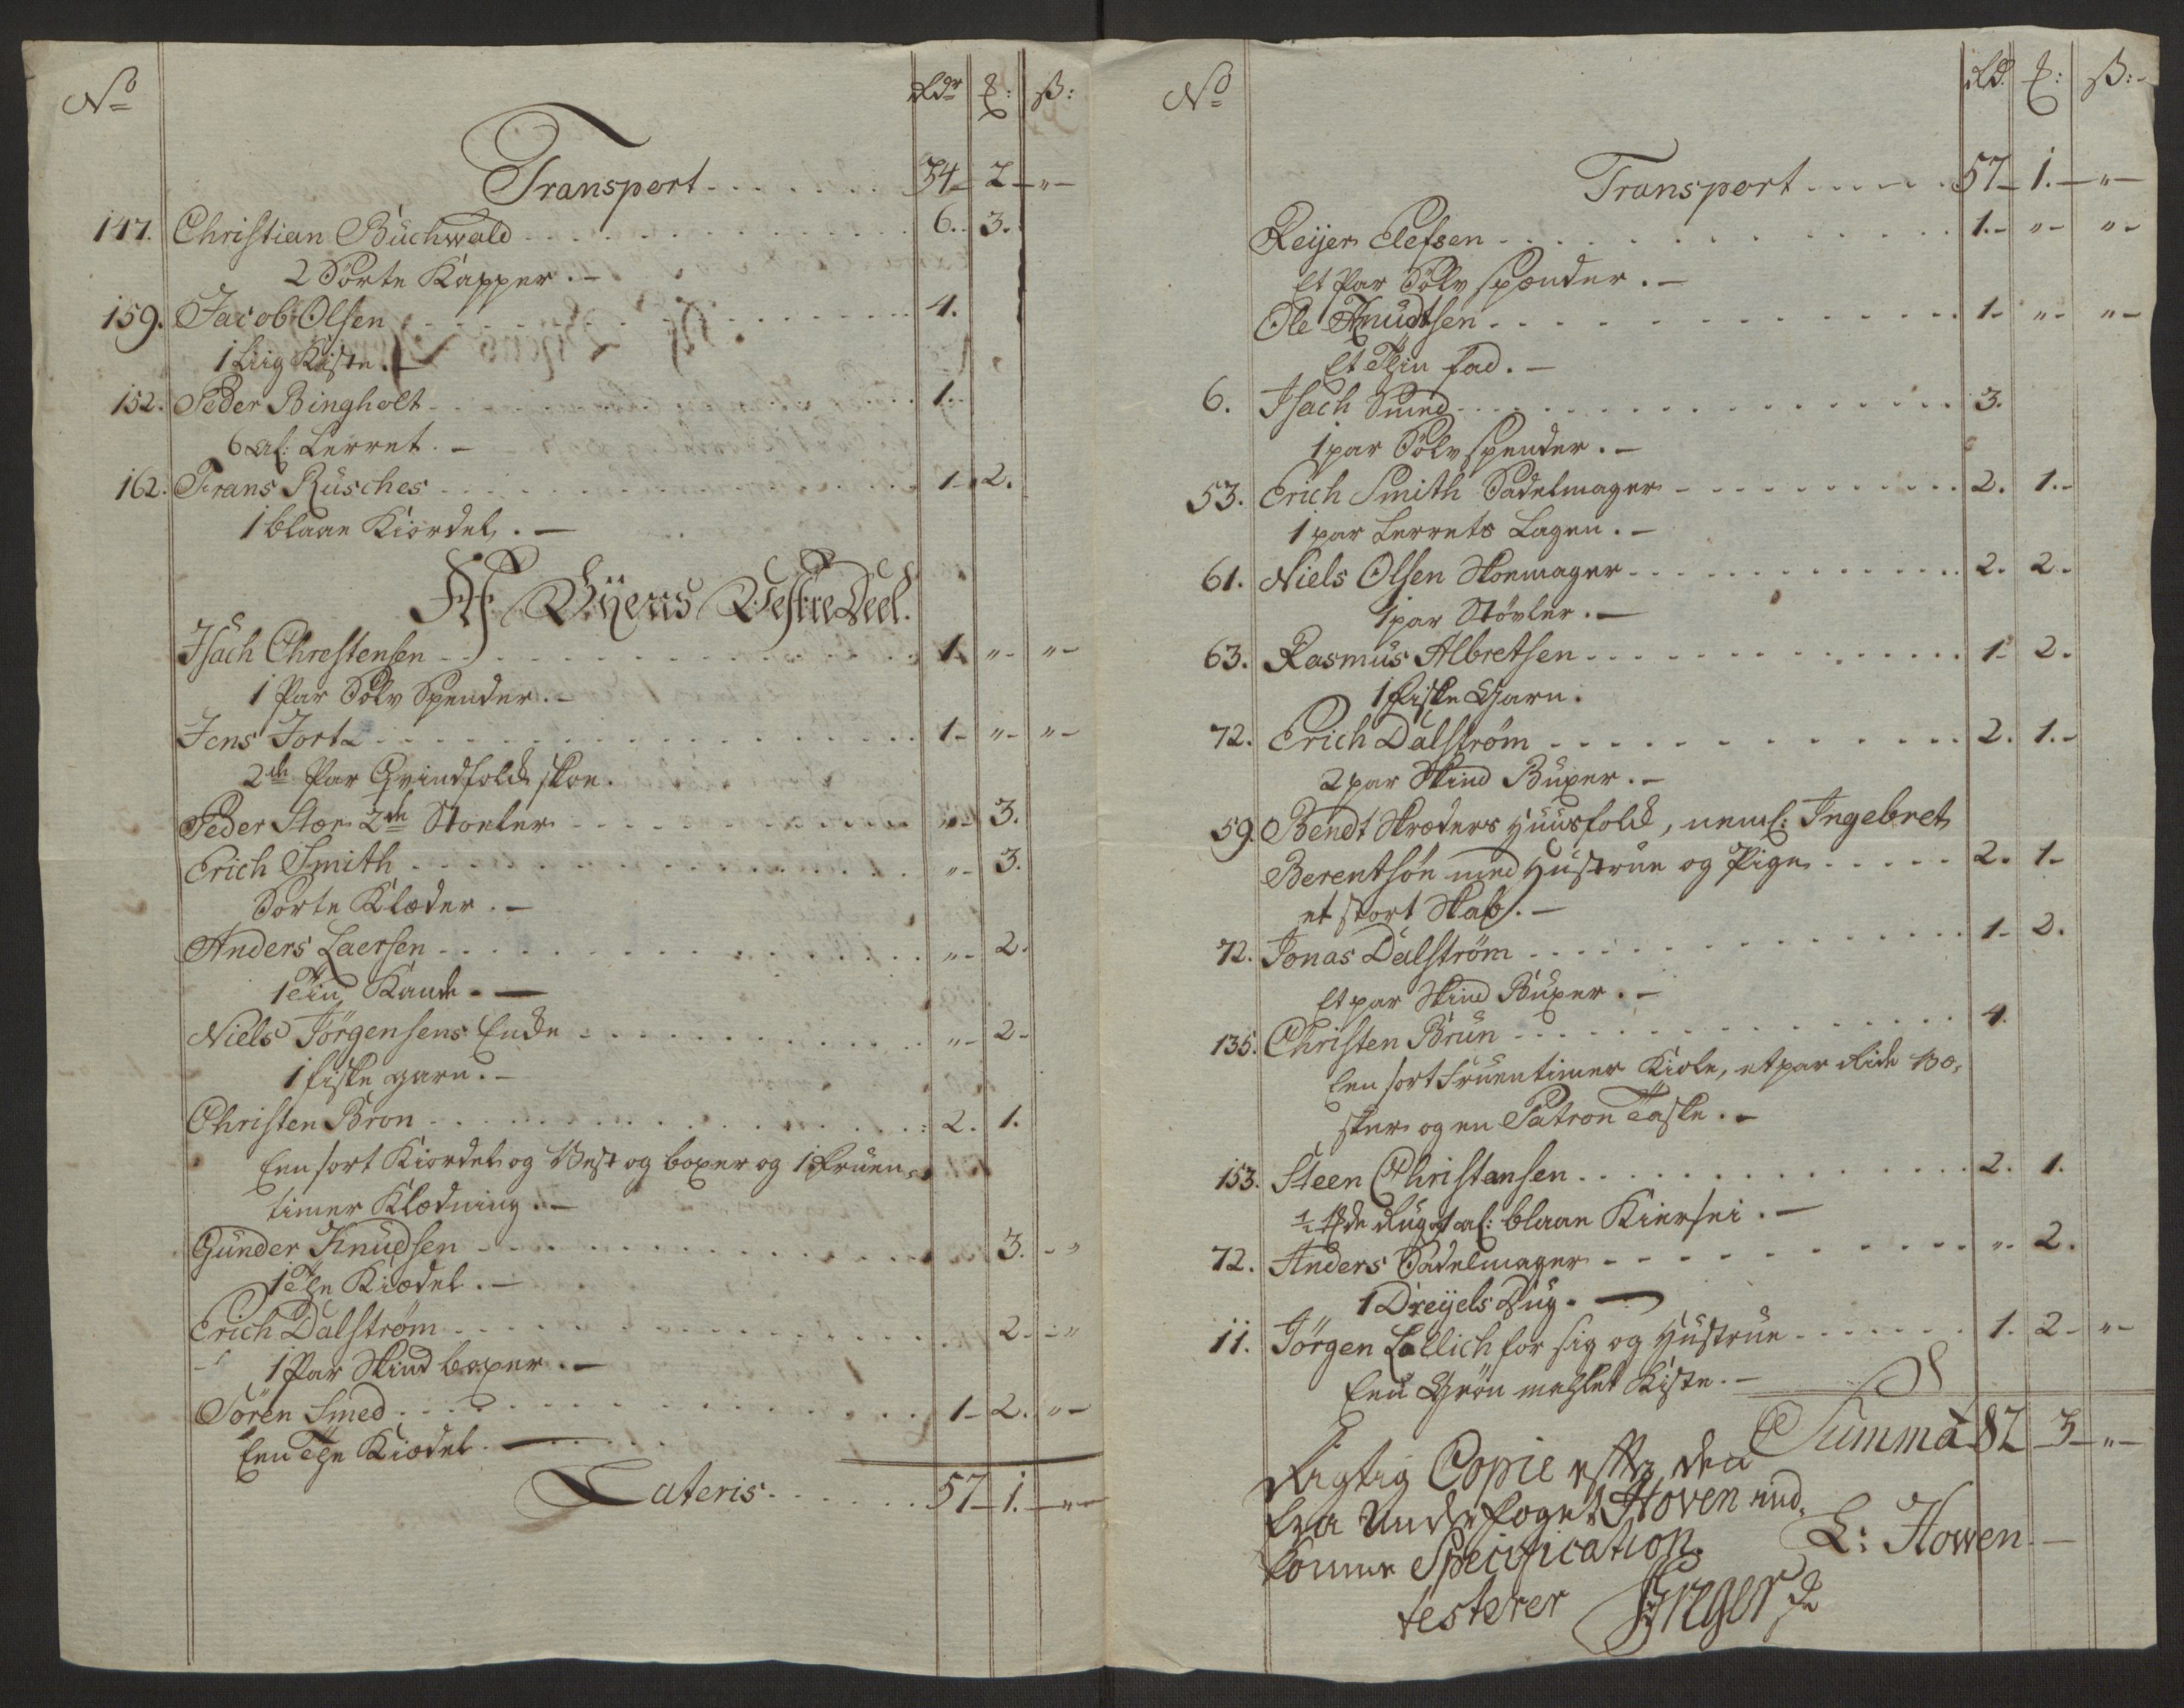 No Rdr ß:
Transport 34 - 2 - " -
147. Christian Büchwald 6. 3.
2 Sorte Kapper. -
159. Jacob Olsen 4.
1 Liig Kiste. -
152. Peder Bingholt 1. -
6 al: Lerret. -
162. Frans Rüsches 1 - 2.
1 blaae Kiordel. -
Af Byens Vestre Deel.
Isach Chrestensen 1 - " - " -
1 Par Sølv Spender. -
Jens Jort 1 - " - " -
2de Par Qvindfolck skoe.
Peder Stær 2de Stoeler " - 3.
Erich Smith " - 3.
Sorte Klæder. -
Anders Laersen " - 2.
1 Tin Kande. -
Niels Jörgensens Encke " - 2 -
1 fiske garn. -
Christen Bron 2. 1.
Een sort Kiordel og Vest og boxer og 1 fruen-
timer Klædning. -
Günder Knudsen 3. - "
1 Kiædel. -
Erich Dalström 2 - - "
1 Par Skind boxer. -
Sören Smed 1 - 2. " -
Een Kiædel. -
Lateris 57 - 1. - " -
No Rd. ß: -
Transport 57 - 1. - " -
Reijer Elefsen 1. - " - " -
Et Par Sölv spænder. -
Ole Knudtsen 1 - " - " -
Et Thin fad. -
6. Isach Smed 3.
1 par Sölv spender. -
53. Erich Smith Sadelmager 2. 1. -
1 par Lerrets Lagen. -
61. Niels Olsen Skoemager 2. 2.
1 par Stövler. -
63. Rasmüs Albretsen 1 - 2.
1 fiske Garn.
72. Erich Dalström 2. 1. -
2 par Skind Büxer. -
59. Bendt Skræders Huusfolck, neml: Ingebret
Berentsön med Hustrue og Pige 2. 1 -
et stort Skab. -
72. Jonas Dalström 1 - 2.
Et par Skind Büxer. -
135. Christen Brün 4.
Een sort Fruentimer Kiole, et par Ride Bø-
sker og en Patron Taske. -
153. Steen Christensen 2. 1.
1/2 Rug al: blaae Kiersei. -
72. Anders Sadelmager " - 2.
1 Dreyels Dug. -
11. Jörgen Lollich for sig og Hustrue 1. 2 - " -
Een Grøn mahlet Kiste. -
Summa 82 - 3 - " -
Rigtig Copie efter den
fra Underfoget Hoven ind-
komne Specification. L: Howen -
testerer